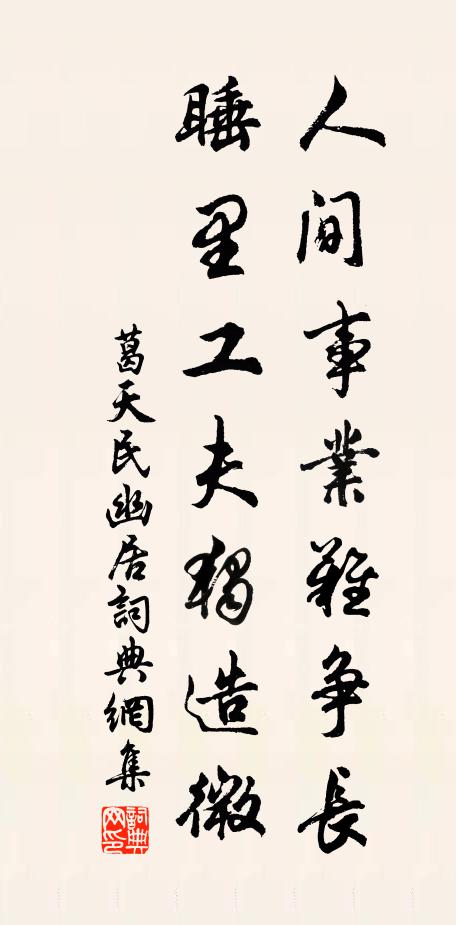 人间事業難争長
睡里工夫獨造微
葛天民幽居詞典網集
詞典网印